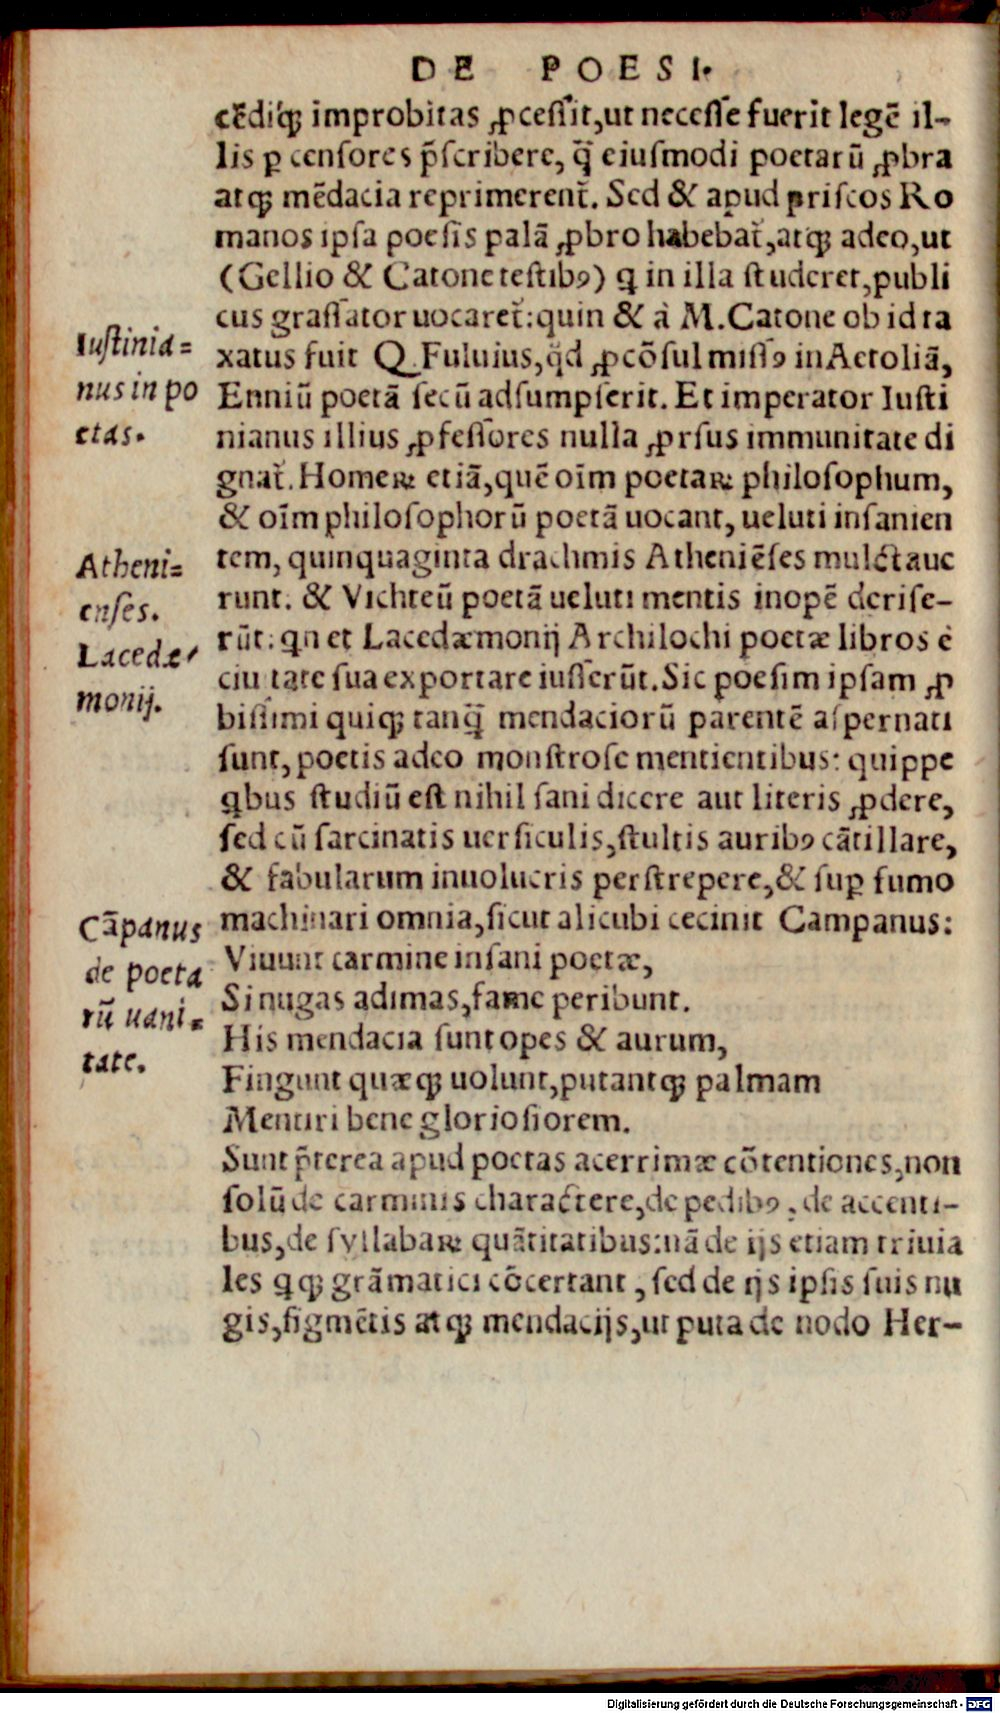 DE POESI.
cẽdiꝗ; improbitas ꝓcessit,ut necesse fuerit legẽ il-
lis ꝑ censores p̃scribere, q̃ eiusmodi poetarũ ꝓbra
atꝗ; mẽdacia reprimerent̃. Sed & apud priscos Ro
manos ipsa poesis palã ꝓbro habebat̃,atꝗ; adeo,ut
(Gellio & Catone testibꝰ) ꝗ in illa studeret,publi
cus grassator uocaret̃:quin & à M.Catone ob id ta
xatus fuit Q.Fuluius,q̃d ꝓcõsul missꝰ in Aetoliã,
Iustinia=
nus in po
etas.
Enniũ poetã secũ adsumpserit. Et imperator Iusti
nianus illius ꝓfessores nulla ꝓrsus immunitate di
gnat̃. Homeꝝ etiã,quẽ oĩm poetaꝝ philosophum,
& oĩm philosophorũ poetã uocant, ueluti insanien
tem, quinquaginta drachmis Atheniẽses mulctaue
Atheni=
enses.
Lacedæ=
monij.
runt. & Vichteũ poetã ueluti mentis inopẽ derise-
rũt: ꝗn et Lacedæmonij Archilochi poetæ libros è
ciuitate sua exportare iusserũt. Sic poesim ipsam ꝓ
bissimi quiꝗ; tanq̃ mendaciorũ parentẽ aspernati
sunt, poetis adeo monstrose mentientibus: quippe
ꝗbus studiũ est nihil sani dicere aut literis ꝓdere,
sed cũ sarcinatis uersiculis,stultis auribꝰ cãtillare,
& fabularum inuolucris perstrepere,& suꝑ fumo
machinari omnia,sicut alicubi cecinit Campanus:
Cãpanus
de poeta
rũ uani=
tate.
Viuunt carmine insani poetæ,
Si nugas adimas,fame peribunt.
His mendacia sunt opes & aurum,
Fingunt quæꝗ; uolunt,putantꝗ; palmam
Mentiri bene gloriosiorem.
Sunt p̃terea apud poetas acerrimæ cõtentiones,non
solũ de carminis charactere,de pedibꝰ, de accenti-
bus,de syllabaꝝ quãtitatibus:nã de ijs etiam triuia
les ꝗꝗ; grãmatici cõcertant, sed de ijs ipsis suis nu
gis,figmẽtis atꝗ; mendacijs,ut puta de nodo Her-
Digitalisierung gefördert durch die Deutsche Forschungsgemeinschaft - DFG